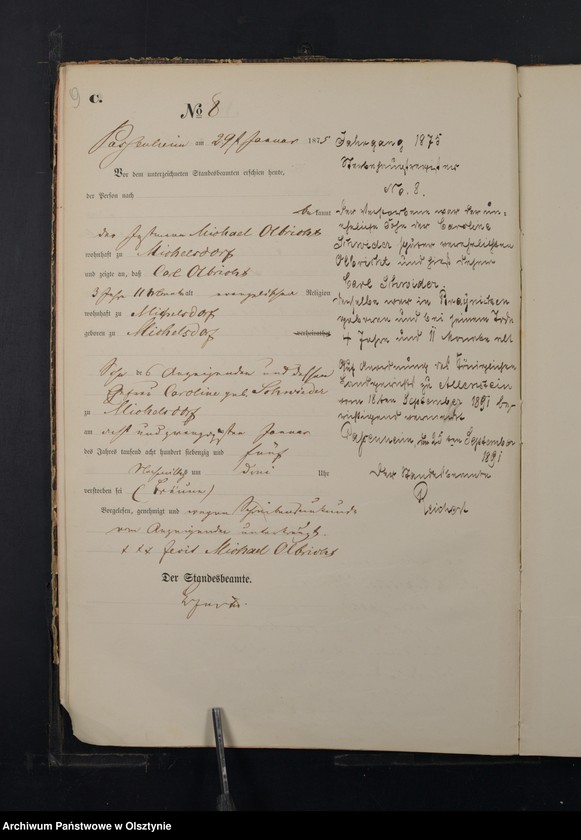 9
C.
No 8
Passenheim am 29t Januar 1875
Vor dem unterzeichneten Standesbeamten erschien heute,
der Person nach
bekannt
der Michael Olbricht
wohnhaft zu Michelsdorf
und zeigte an, daß Carl Olbricht
3 Jahr 11 Monat alt evangelischer Religion
wohnhaft zu Michelsdorf
geboren zu Michelsdorf verheirathet
Sohn des Anzeigenden und dessen
Ehefrau Caroline geb. Schwieder
zu Michelsdorf
am acht und zwanzigsten Januar
des Jahres tausend acht hundert siebenzig und fünf
Nachmittags um drei Uhr
verstorben sei (Bräune)
Vorgelesen, genehmigt und wegen Schreibensunkunde
vom Anzeigenden unterkreuzt.
+ + + fecit Michael Olbricht
Der Standesbeamte.
Jahrgang 1875
Sterbehauptregister
No. 8.
Der Verstorbene war der un-
eheliche Sohn der Caroline
Schwider später verehelichten
Olbricht und hieß daher
Carl Schwider.
Derselbe war in
geboren und bei seinem Tode
4 Jahre und 11 Monate alt
Auf Anordnung des Königlichen
Landgerichts zu Allenstein
vom September 1891 be-
richtigend vermerkt
Passenheim, den 25ten September
1891
Der Standesbeamte
Reichert
Archiwum Państwowe w Olsztynie